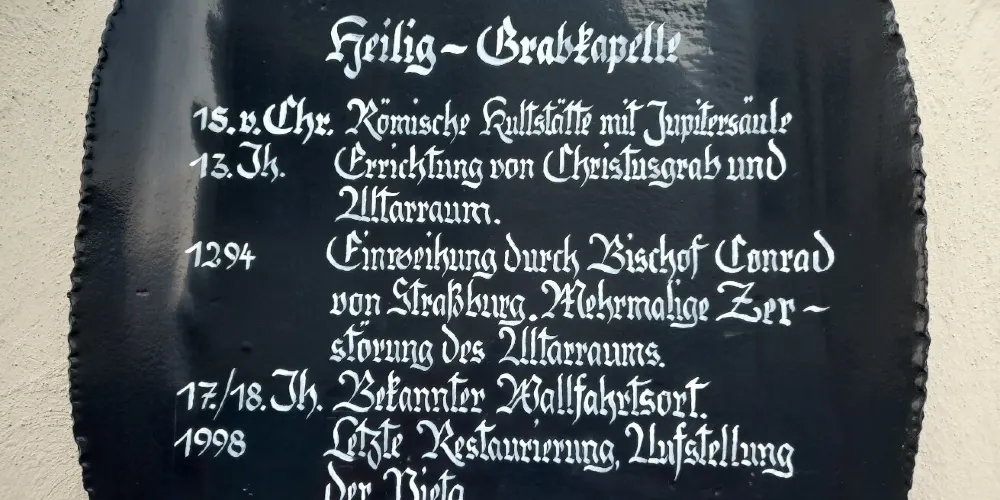 Heilig - Grabkapelle
15. v. Chr. Römische Kultstätte mit Jupitersäule
13. Jh. Errichtung von Christusgrab und
Altarraum.
1294 Einweihung durch Bischof Conrad
von Straßburg. Mehrmalige Zer-
störung des Altarraums.
17./18. Jh. Bekannter Wallfahrtsort.
1998 Letzte Restaurierung, Aufstellung
der Pieta